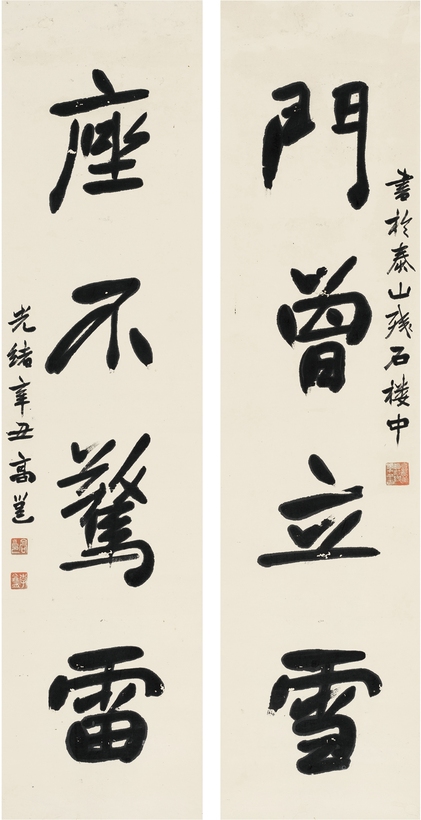 書於泰山殘石樓中
門曾立雪
座不驚雷
光緒辛丑高邕